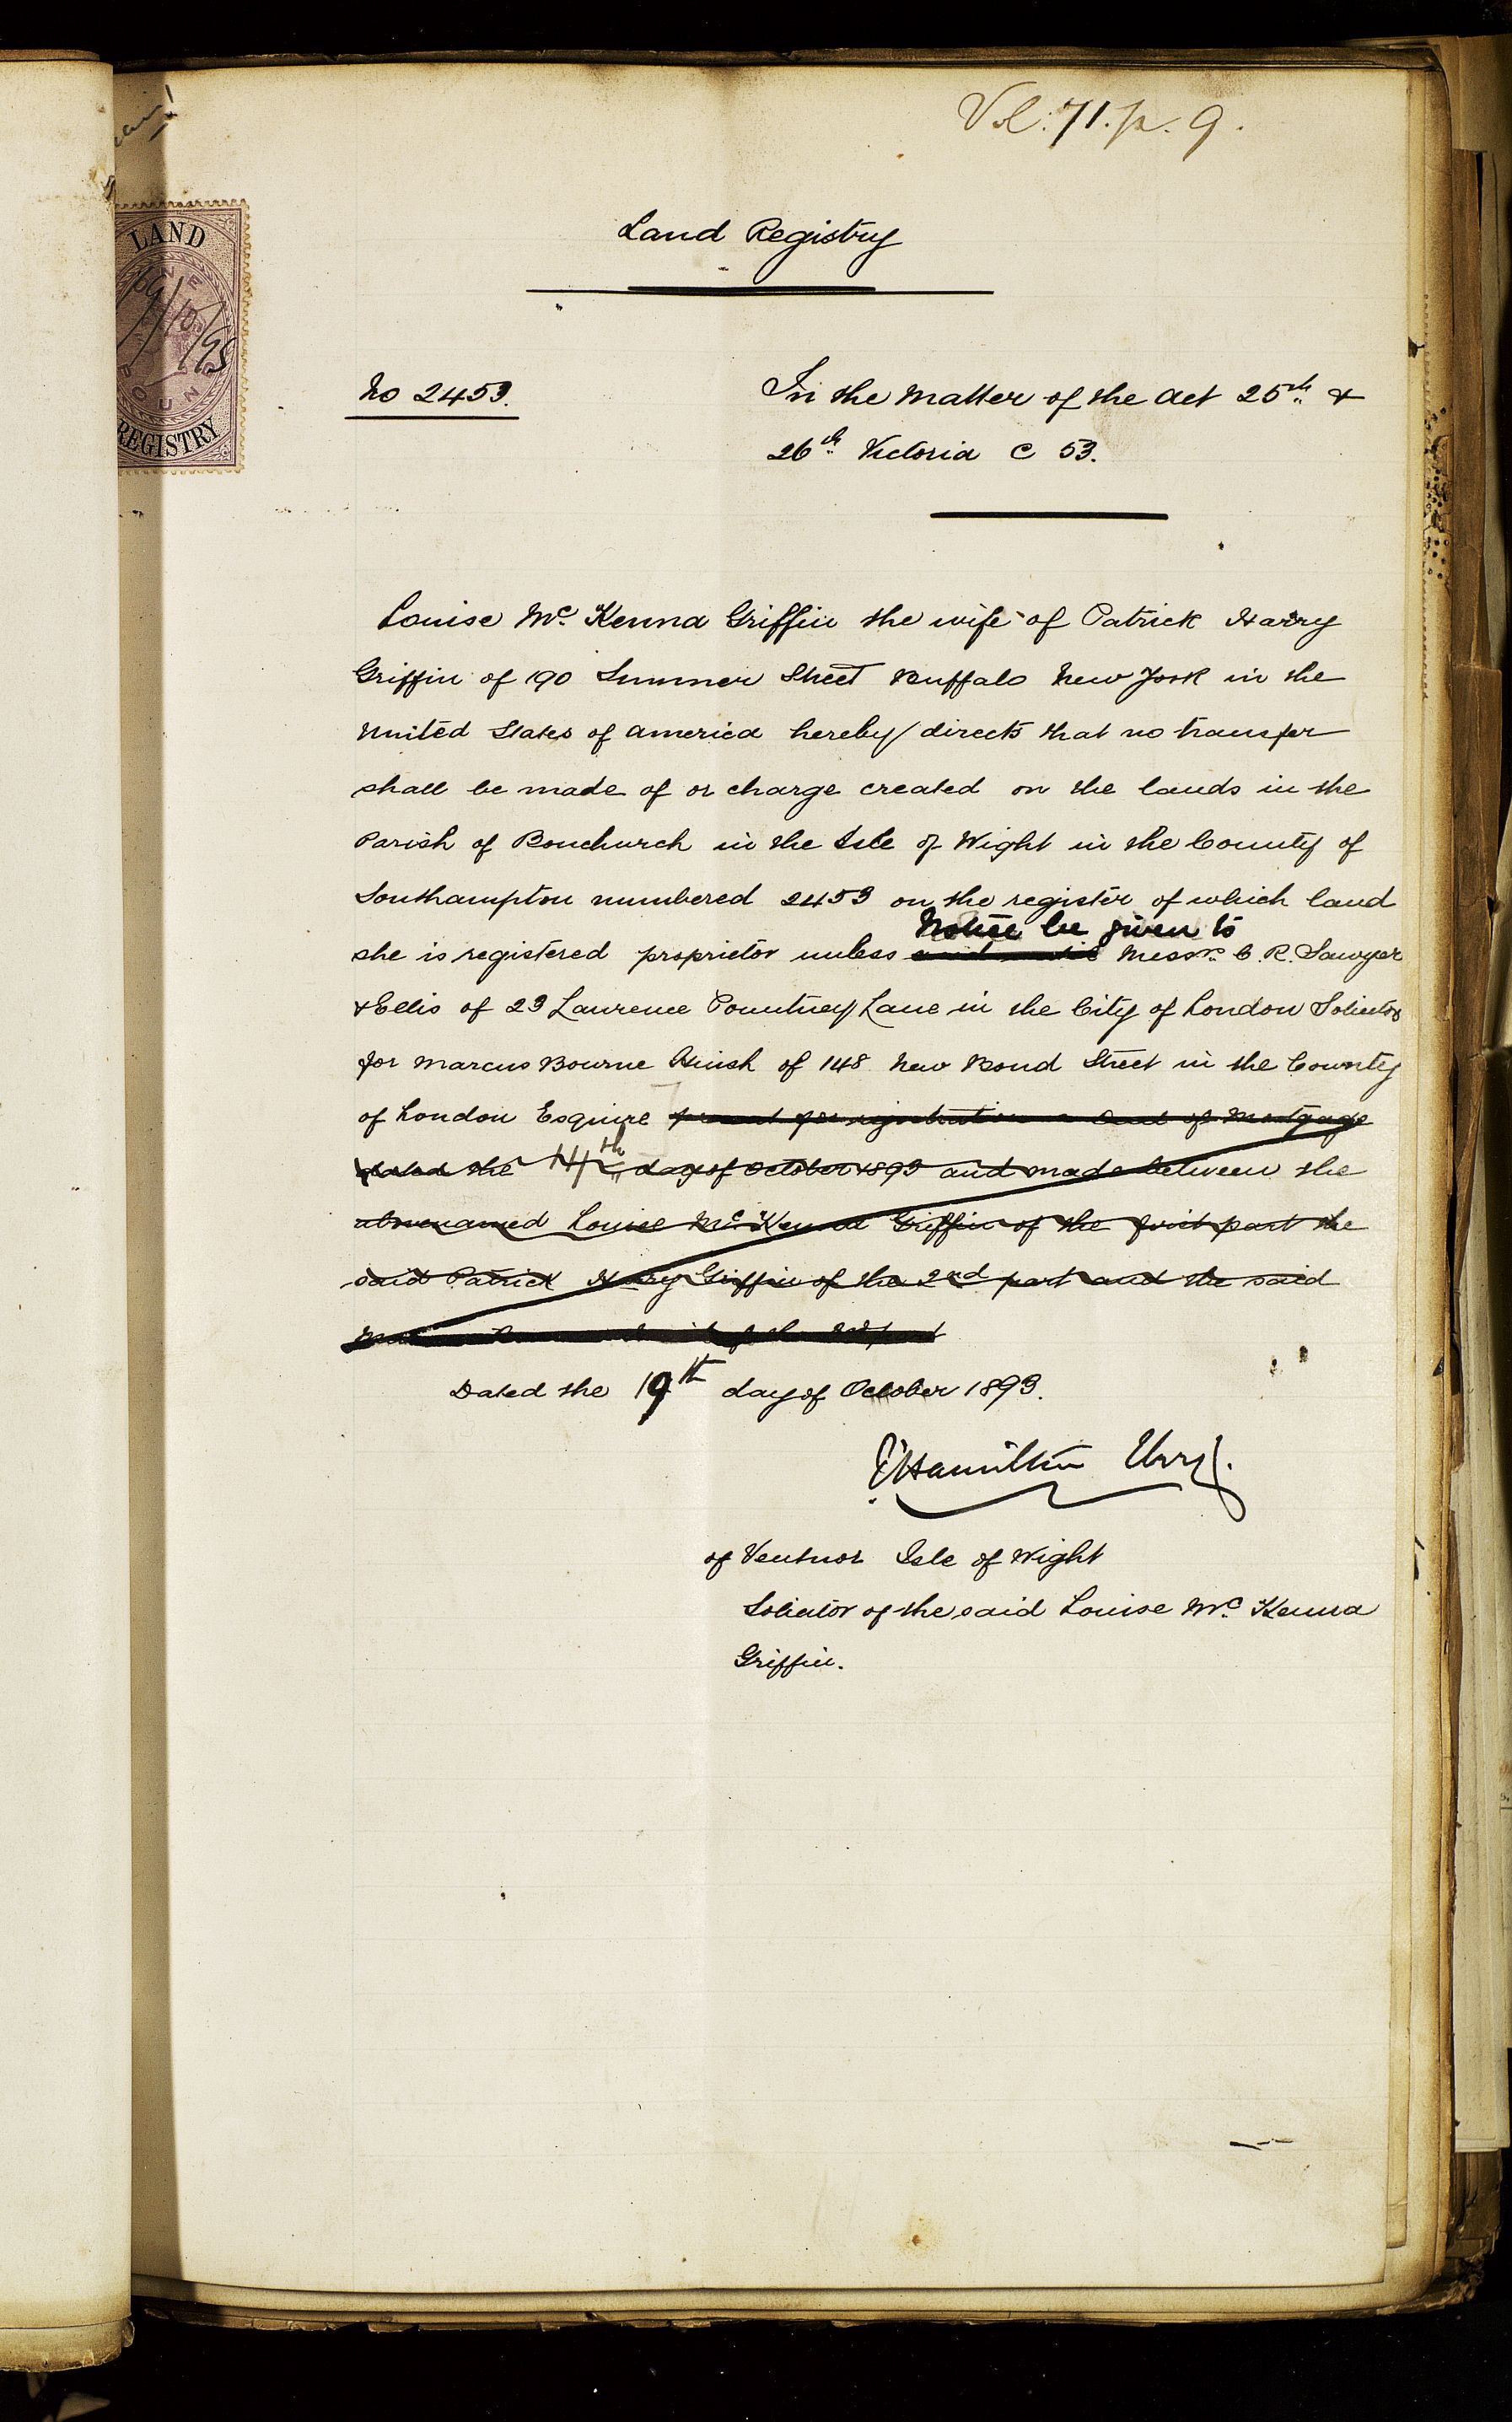 Vol: 71. p. 9.
LAND
REGISTRY
Land Registry
No 2453.
In the Matter of the Act 25th &
26th Victoria C 53.
Louise Mc Kenna Griffin the wife of Patrick Harry
Griffin of 190 Summer Street Buffalo New York in the
United States of America hereby directs that no transfer
shall be made of or charge created on the lands in the
Parish of Bonchurch in the Isle of Wight in the County of
Southampton numbered 2453 on the register of which land
Notice be given to
she is registered proprietor unless and until Messrs. C. R. Sawyer
& Ellis of 23 Laurence Pountney Lane in the City of London Solicitors
for Marcus Bourne Huish of 148 New Bond Street in the County
of London Esquire present for registration a Deed of Mortgage
dated the 14th day of October 1893 and made between the
abovenamed Louise Mc Kenna Griffin of the first part the
said Patrick Harry Griffin of the 2nd part and the said
of the 3rd part
Dated the 19th day of October 1893.
Hamilton
of Ventnor Isle of Wight
Solicitor of the said Louise Mc Kenna
Griffin.